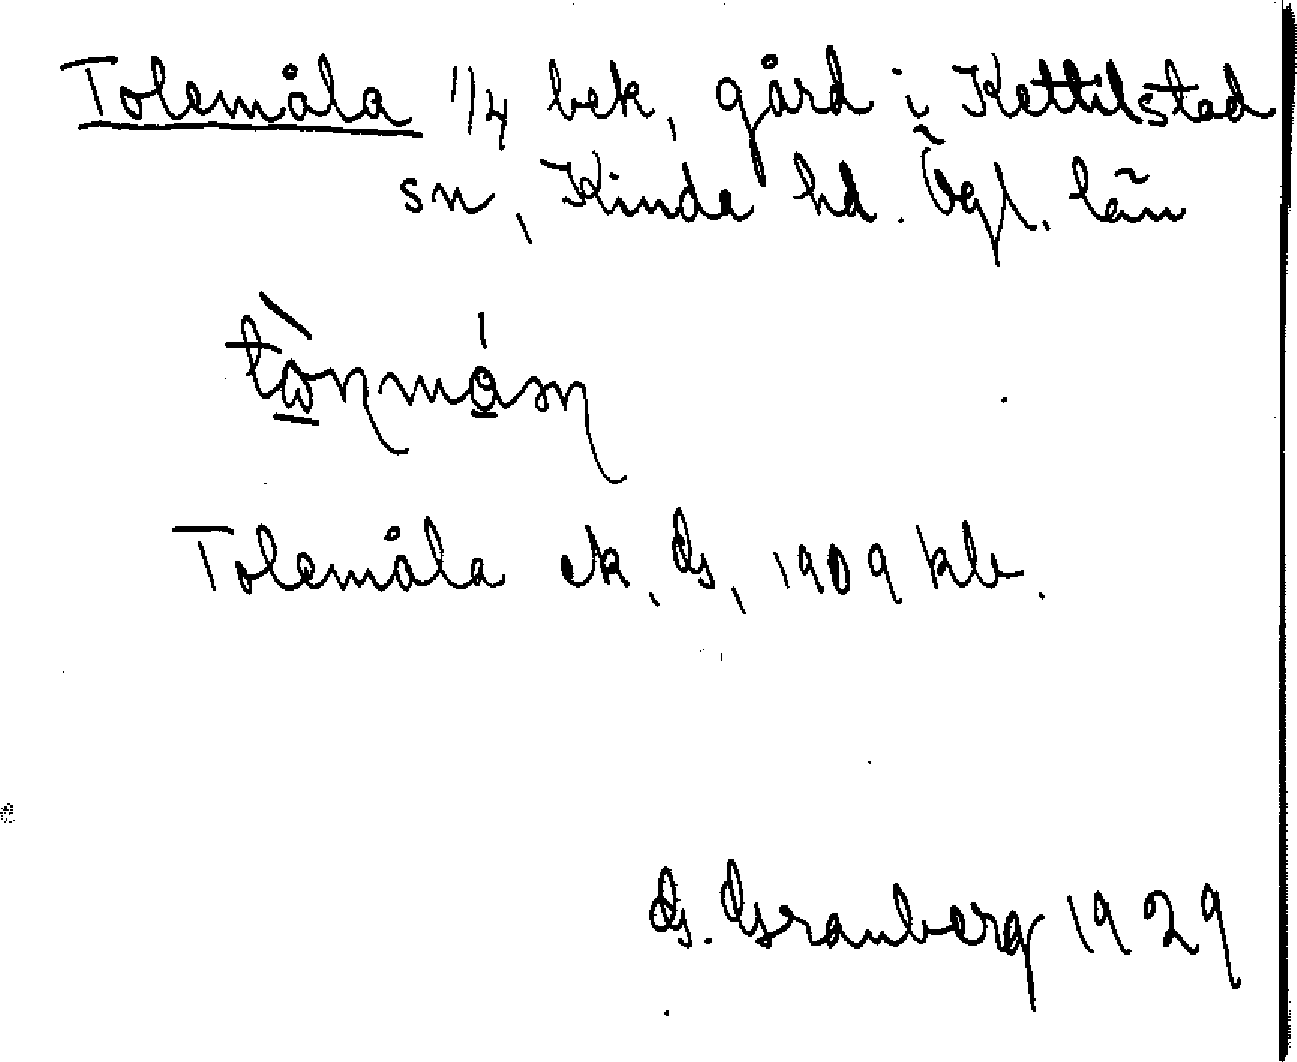 Tolemåla 1/4 bek, gård i Kettilstad
sn, Kinda hd. Ögl. län
Tolemåla ek, G, 1909 kb.
G. Granberg 1929